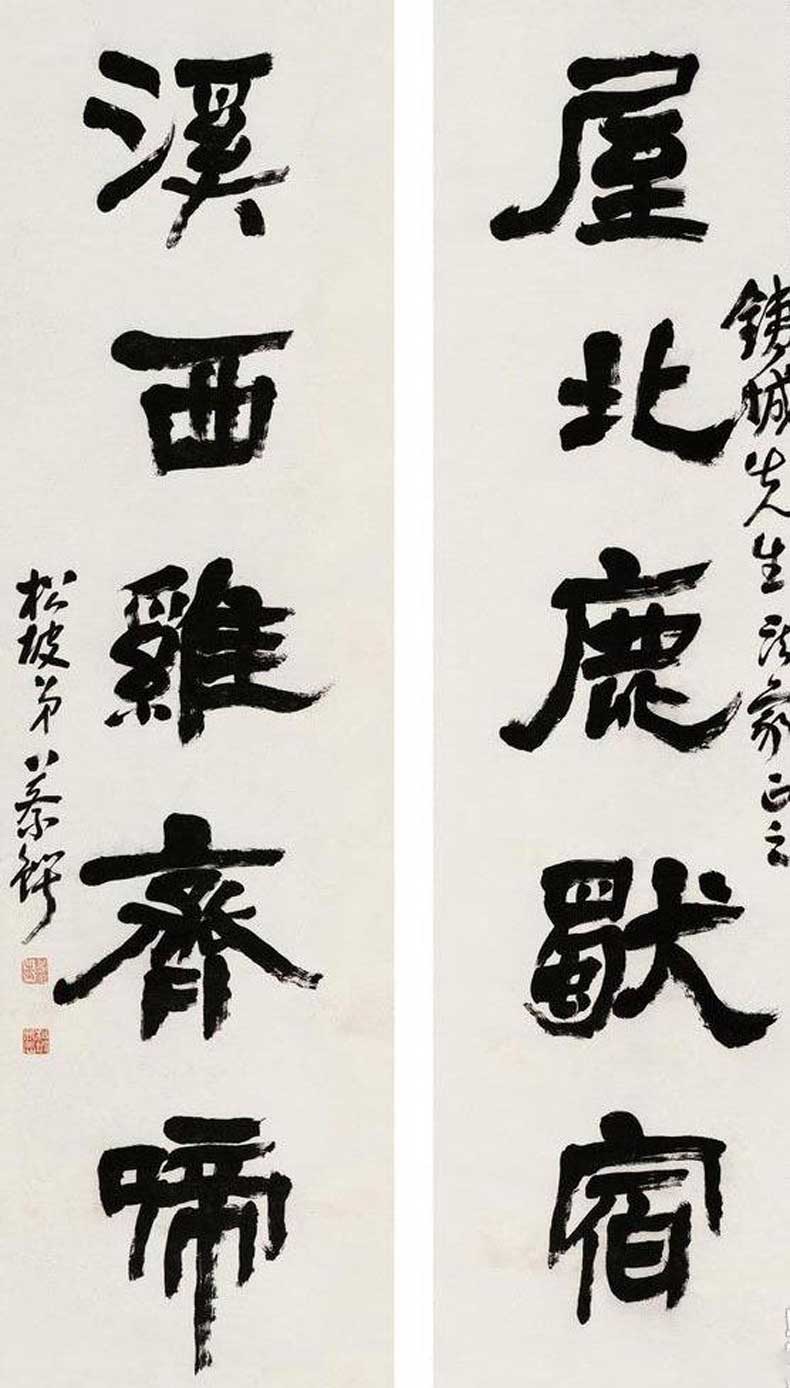 屋北鹿獨宿
鐵城先生法家正之
溪西雞齊啼
松坡弟蔡鍔